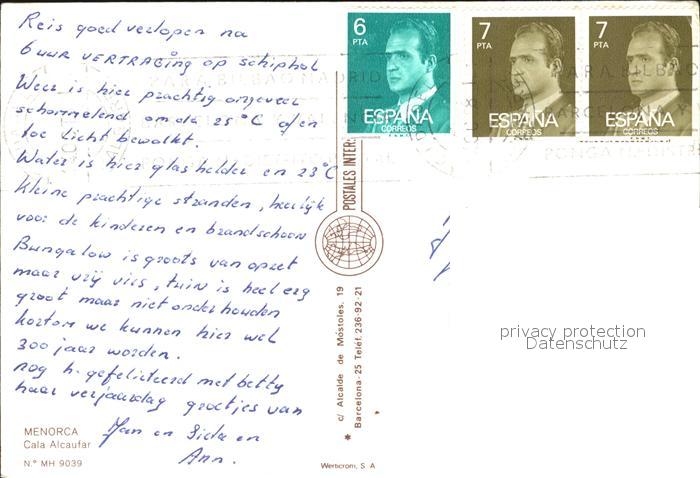 Reis goed verlopen na
6 uur VERTRAGING op schiphol
Weer is hier prachtig ongeveer
schommelend om de 25°C af en
toe licht bewolkt.
Water is hier glashelder en 23°C
Kleine prachtige stranden, heerlijk
voor de kinderen en brandschoon
Bungalow is groots van opzet
maar vrij vies, tuin is heel erg
groot maar niet onderhouden
kortom we kunnen hier wel
300 jaar worden.
nog h. gefeliciteerd met betty
haar verjaardag groetjes van
Jan en Sida en
Ann.
MENORCA
Cala Alcaufar
N.º MH 9039
6 PTA
ESPAÑA
CORREOS
7 PTA
ESPAÑA
CORREOS
7 PTA
ESPAÑA
CORREOS
POSTALES INTER
* c/ Alcalde de Móstoles, 19
Barcelona-25 Teléf. 236-92-21
Werticrom, S A
privacy protection
Datenschutz